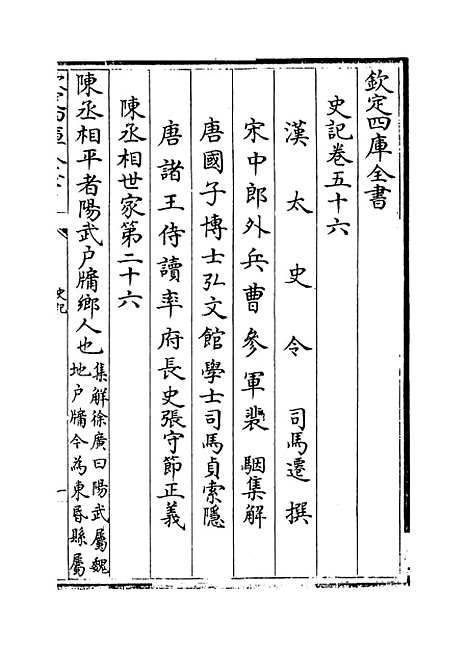 欽定四庫全書
史記卷五十六
漢太史令司馬遷撰
宋中郎外兵曹參軍裴駰集解
唐國子博士弘文館學士司馬貞索隱
唐諸王侍讀率府長史張守節正義
陳丞相世家第二十六
陳丞相平者陽武戸牖鄉人也集解徐廣曰陽武屬魏
地戸牖今為東昬縣屬
史記
一